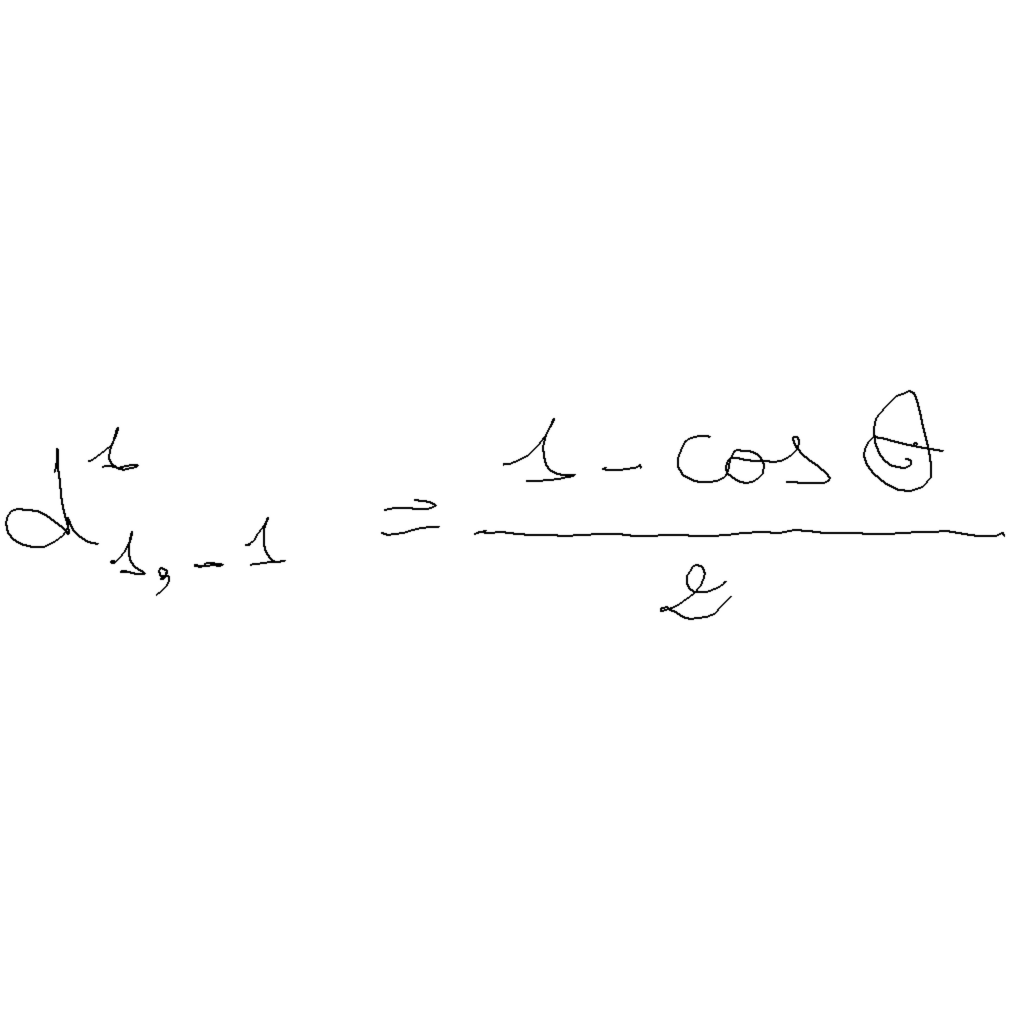 d^{1}_{1,-1} = \frac{1 - \cos \theta}{2}